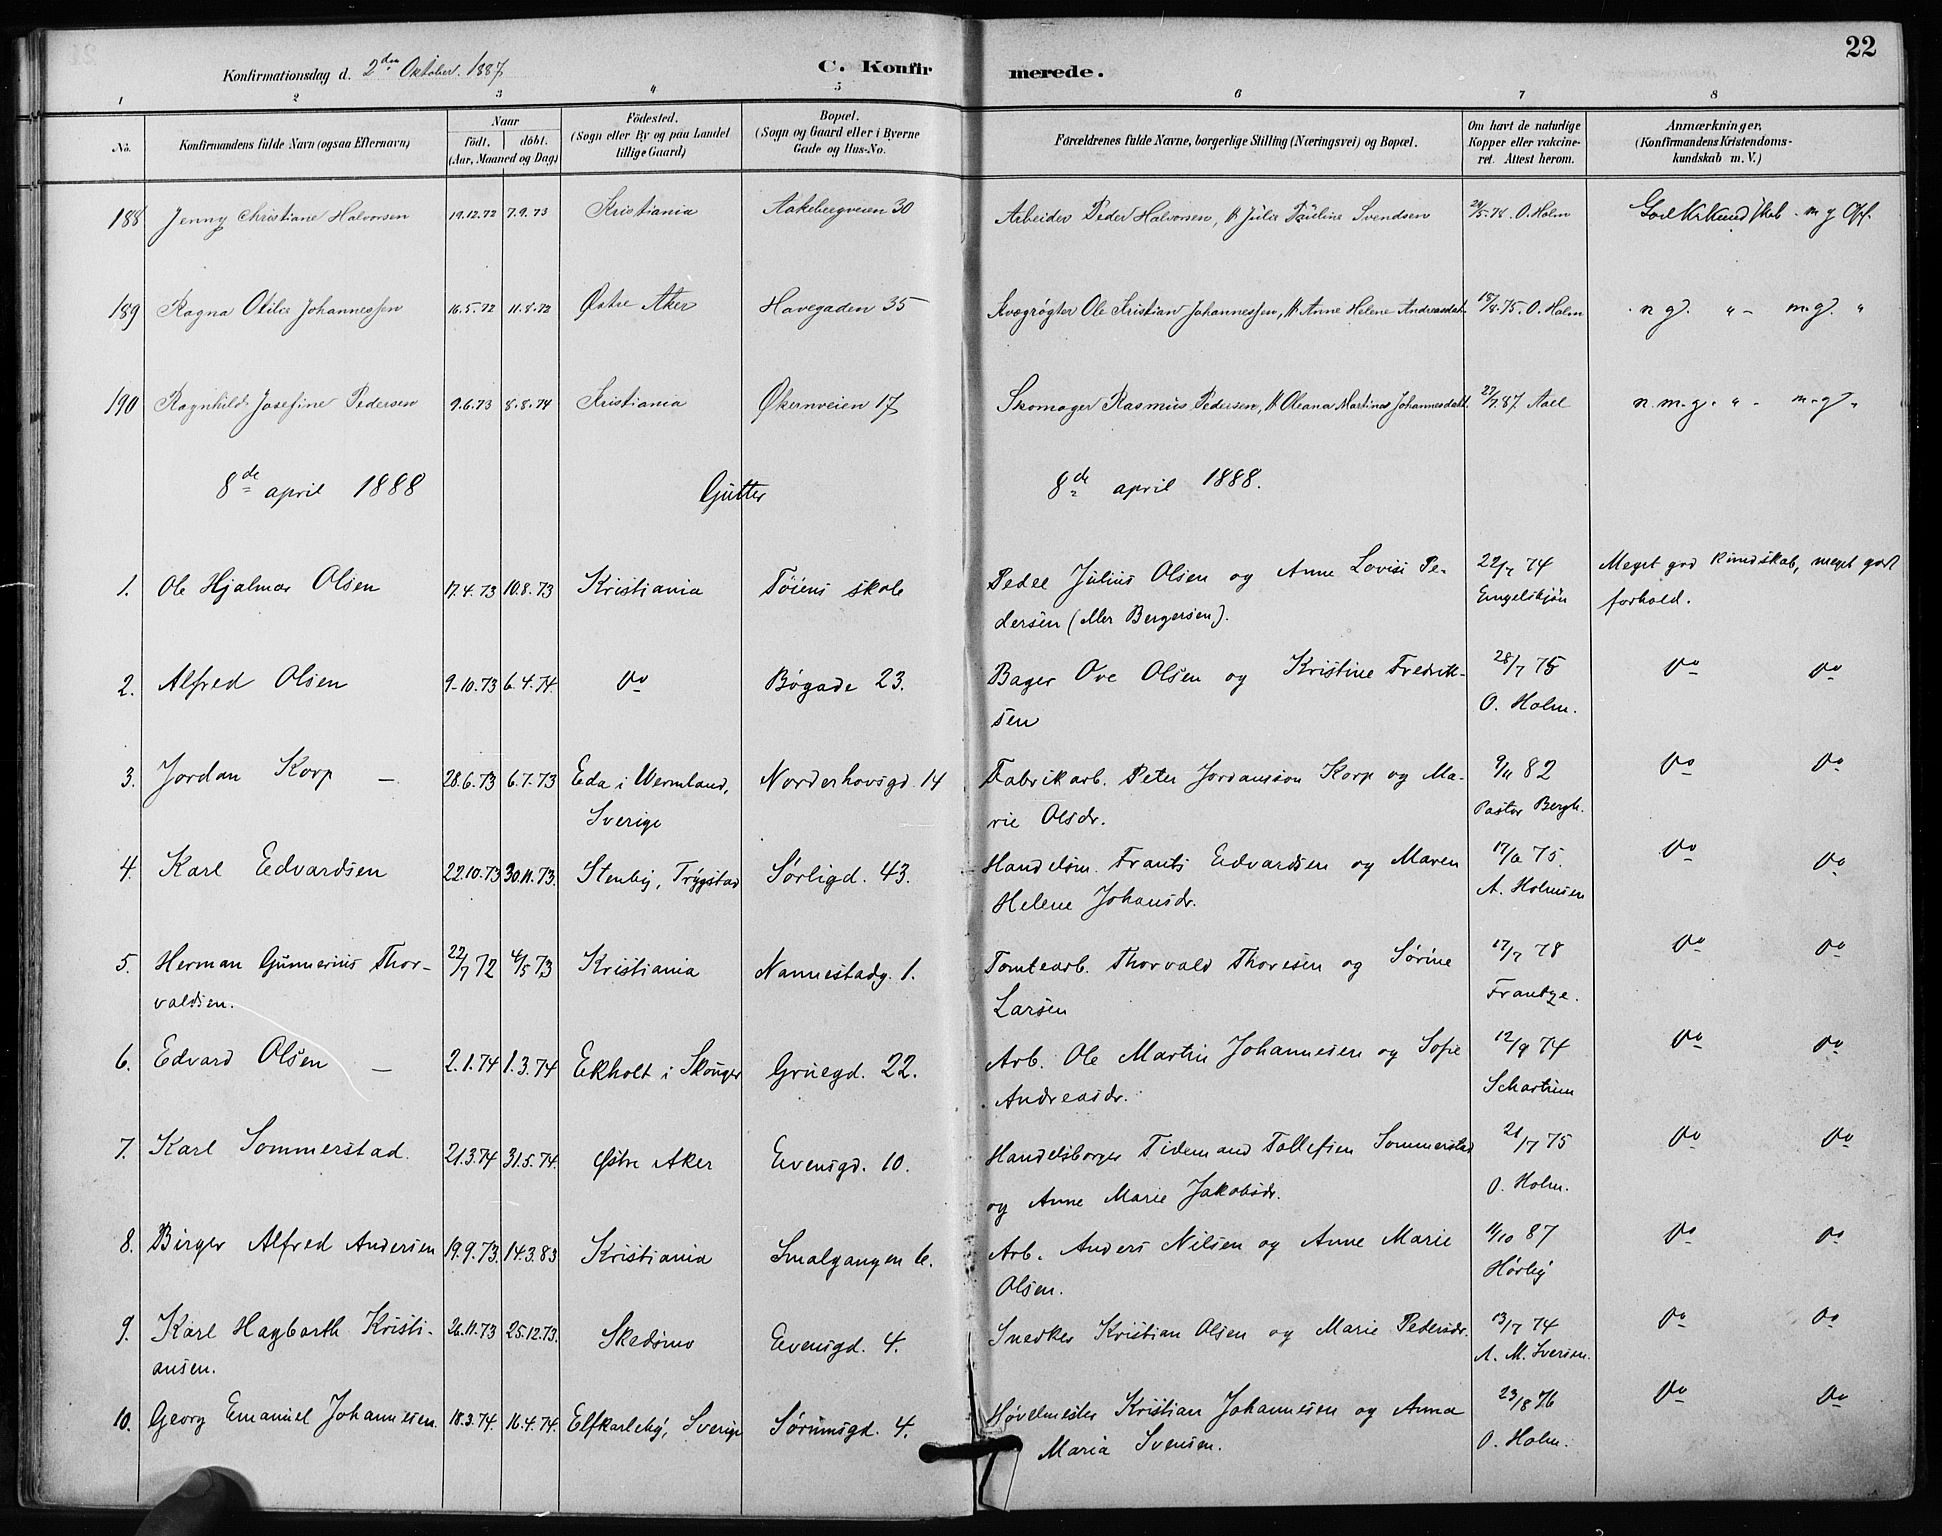 22
Konfirmationsdag d. 2den Oktober 1887
C. Konfirmerede.
1 2 3 4 5 6 7 8
No.
Konfirmandens fulde Navn (ogsaa Efternavn)
Naar
født. døbt.
(Aar, Maaned og Dag)
Fødested.
(Sogn eller By og paa Landet
tillige Gaard)
Bopæl.
(Sogn og Gaard eller i Byerne
Gade og Hus-No.
Forældrenes fulde Navne, borgerlige Stilling (Næringsvei) og Bopæl.
Om havt de naturlige
Kopper eller vakcine-
ret. Attest herom.
Anmærkninger.
(Konfirmandens Kristendoms-
kundskab m. V.)
188 Jenny Christiane Halvorsen 19.12.72 7.9.73 Kristiania Aakebergveien 30 Arbeider Peder Halvorsen, Julie Pauline Svendsen O. Holm God Kr.kundskab - m g Opf.
189 Ragna Otilie Johannessen 16.5.72 11.8.72 Østre Aker Havegaden 35 Kvægrøgter Ole Kristian Johannessen, Anne Helene Andreasdat. 18/8.75. O. Holm n g. " - m.g. "
190 Ragnhild Josefine Pedersen 9.6.73 8.8.74 Kristiania Økernveien 17 Skomager Rasmus Pedersen, Oleana Martinas Johannesdatt. 27/7.87. Aall n. m. g. " - m-g "
8de april 1888 Gutter 8de april 1888.
1. Ole Hjalmar Olsen 17.4.73 10.8.73 Kristiania Tøiens skole Peder Julius Olsen og Anne Lovise Pe- 22/7 74 Meget god kundskab, meget godt
dersen (eller Bergersen). Engelskjøn forhold.
2. Alfred Olsen 9.10.73 6.4.74. Do Bøgade 23. Bager Ove Olsen og Kristine Fredrik- 28/7 75 Do Do
sen O. Holm.
3. Jordan Korp — 28.6.73 6.7.73 Eda i Wermland, Norderhovsgd. 14 Fabrikarb. Peter Jordansson Korp og Ma- 9/11 82 Do Do
Sverige rie Olsdr. Pastor Bergh.
4. Karl Edvardsen 22.10.73 30.11.73. Stenby, Trygstad Sørligd. 43. Handelsm. Frants Edvardsen og Maren 75. Do Do
Helene Johansdr. A. Holmsen
5. Herman Gunnerius Thor- 22/7 72 4/5 73 Kristiania Nannestadg. 1. Tomtearb. Thorvald Thoresen og Sørine 17/7 78 Do Do
valdsen. Larsen
6. Edvard Olsen — 2.1.74 1.3.74 Ekholt i Skouger Gruegd. 22. Arb. Ole Martin Johannesen og Sofie 12/9 74 Do Do
Andreasdr. Schartum
7. Karl Sommerstad. 21.3.74 31.5.74. Østre Aker Evensgd. 10. Handelsborger Tidemand Tollefsen Sommerstad 21/7 75 Do Do
og Anne Marie Jakobsdr. O. Holm.
8. Birger Alfred Andersen 19.9.73. 14.3.83 Kristiania Smalgangen 6. Arb. Anders Nilsen og Anne Marie 11/10 87 Do Do
Olsen. Hørby
9. Karl Hagbarth Kristi- 26.11.73 25.12.73. Skedsmo Evensgd. 4. Snedker Kristian Olsen og Marie Pedersdr. 13/7 74 Do Do
ansen. A. M. Iversen.
10. Georg Emanuel Johannesen. 18.3.74. 16.4.74. Elfkarleby, Sverige Sørumsgd. 4. Høvelmester Kristian Johannesen og Anna 23/8 76 Do Do
Maria Svensen. O. Holm.